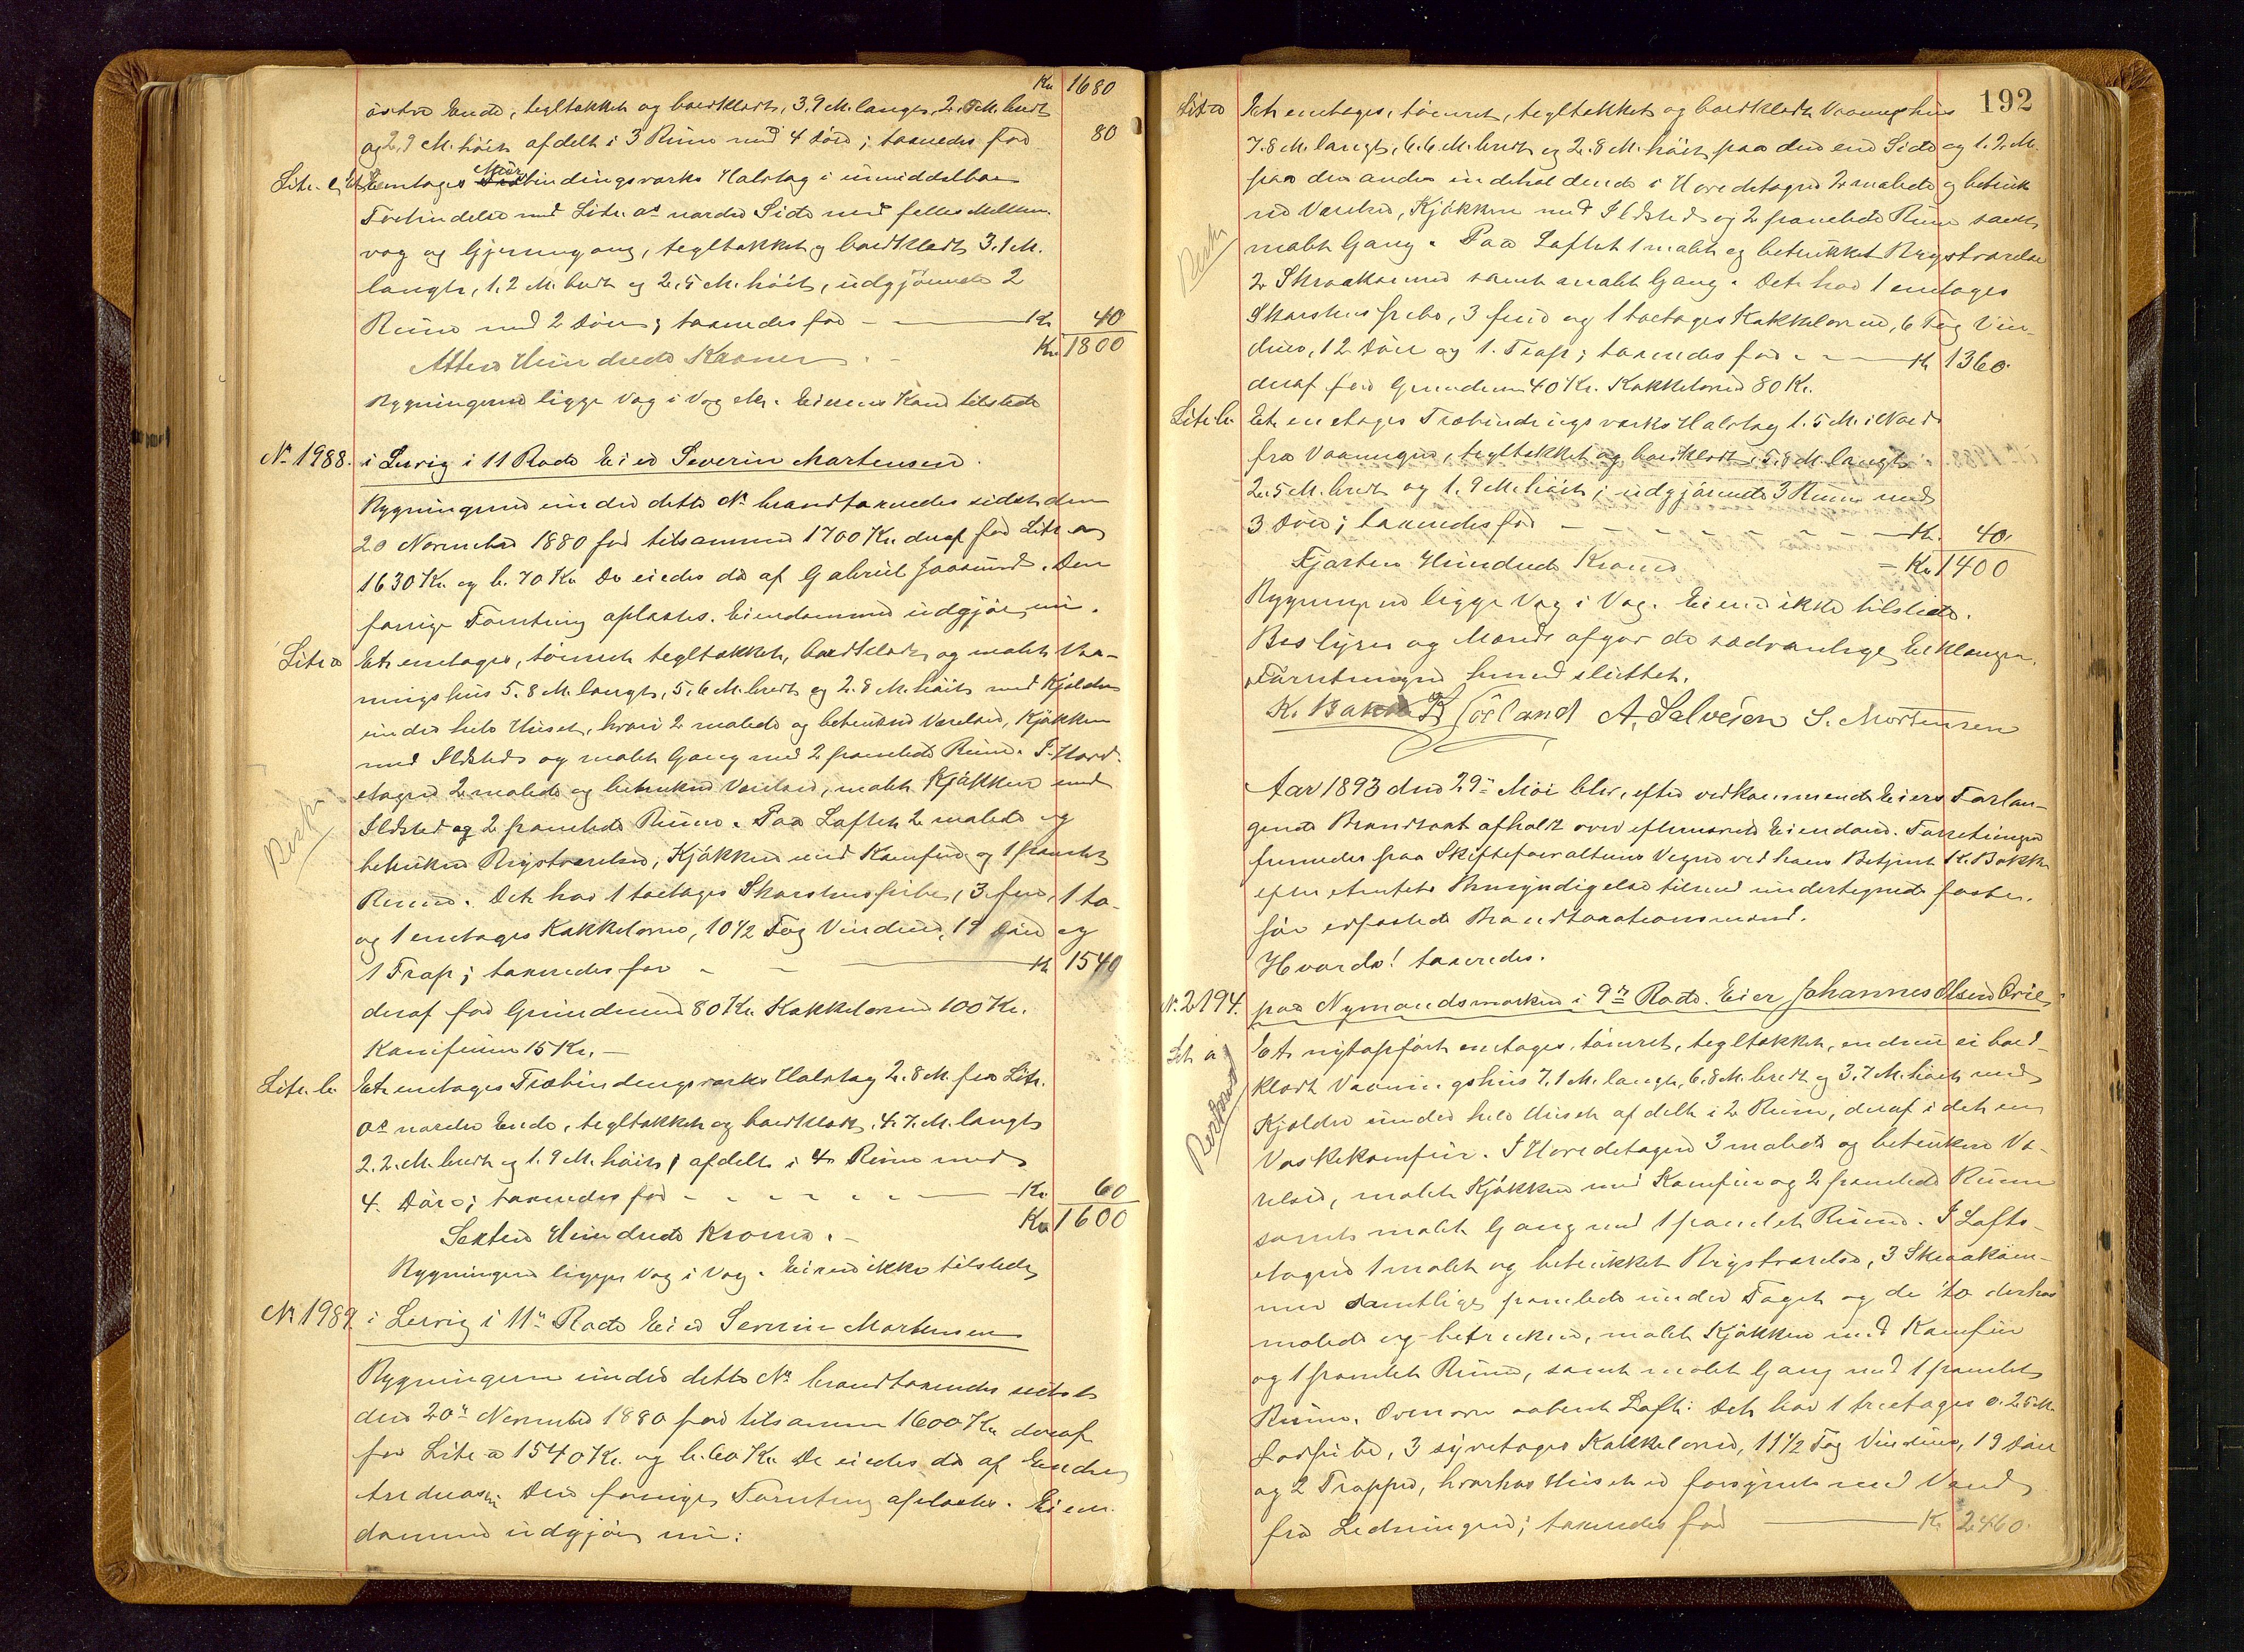 Kr 1680
østre Ende, tegltækket og bordklædt, 3.9 M. langt, 2. M. bredt
og 2,9 M. høit afdelt i 3 Rum med 4 Døre; taxeredes for 80
Litr. c. Et Etages Mur bindingsværks Halvtag i umiddelbar
Forbindelse med Litr. a's nordre Side med fælles Mellem
væg og Gjennemgang, tegltækket og bordklædt 3.1 M.
langt, 1.2 M. bredt og 2.5 M. høit, udgjørende 2
Rum med 2 Døre; taxeredes for Kr 40
Atten Hundrede Kroner. Kr 1800
Bygningerne ligge Væg i Væg. Eierens Kone tilstede
No 1988. i Lervig i 11 Rode Eier Severin Martensen.
Bygningerne under dette No brandtaxeredes sidst den
20 November 1880 for tilsammen 1700 Kr. deraf for Litr a
1630 Kr. og b. 70 Kr. De eiedes da af Gabriel Jaasund. Den
forrige Forretning oplæstes. Eiendommen udgjør nu.
Litr. a Et enetages, tømret tegltækket, bordklædt og malet Vaa-
ningshus 5.8 M. langt, 5.6 M. bredt og 2.8 M. høit med Kjælder
under hele Huset, hvori 2 malede og betrukne Værelser, Kjøkken
med Ildsted og malet Gang med 2 panelede Rum. I Hoved-
etagen 2 malede og betrukne Værelser, malet Kjøkken med
Ildsted og 2 panelede Rum. Paa Loftet 2 malede og
betrukne Kvistværelser, Kjøkken med Komfur og 1 panelet
Rum. Det har 1 toetages Skorstenspibe, 3 fire, 1 to-
og 1 enetages Kakkelovne, 10 1/2 Fag Vinduer, 19 Døre og
1 Trap; taxeredes for Kr 1540
deraf for Grunden 80 Kr. Kakkelovnen 100 Kr.
Komfuren 15 Kr. —
Litr. b. Et enetages Træbindingsværks Halvtag 2.8 M. fra Litr.
a's nordre Ende, tegltækket og bordklædt. 4.7 M. langt
2.2 M. bredt og 1.9 M. høit, afdelt i 4 Rum med
4. Døre; taxeredes for Kr. 60
Sexten Hundrede Kroner. Kr 1600
Bygningerne ligger Væg i Væg. Eieren ikke tilstede
No 1989 i Lervig i 11te Rode Eier Severin Martensen
Bygningerne under dette No brandtaxeredes sidst
den 20de November 1880 for tilsammen 1600 Kr. deraf
for Litr a 1540 Kr. og b. 60 Kr. De eiedes da af Endre
Andreas. Den forrige Forretning oplæstes. Eien-
dommen udgjør nu:
192
Litr a Et enetages, tømret, tegltækket og bordklædt Vaaningshus
7.8 M. langt, 6.6 M. bredt og 2.8 M. høit paa den ene Side og 1.9 M.
paa den anden indeholdende i Hovedetagen 2 malede og betruk
ne Værelser, Kjøkken med Ildsted og 2 panelede Rum samt
malet Gang. Paa Loftet 1 malet og betrukket Kvistværelse
2 Skraakamre samt malet Gang. Det har 1 enetages
Skorstenspibe, 3 fire og 1 toetages Kakkelovne, 6 Fag Vin-
duer, 12 Døre og 1. Trap; taxeredes for Kr 1360.
deraf for Grunden 40 Kr. Kakkelovne 80 Kr.
Litr. b. Et enetages Træbindingsværks Halvtag 1.5 M. i Nord
fra Vaaningen, tegltækket og bordklædt, 5.8 M. langt
2.5 M. bredt og 1.9 M. høit; udgjørende 3 Rum med
3 Døre; taxeredes for Kr. 40.
Fjorten Hundrede Kroner Kr 1400
Bygningerne ligge Væg i Væg. Eieren ikke tilstede.
Bestyrer og Mænd afgav de sædvanlige Erklæringer.
Forretningen hermed sluttet.
K. Bakke K Sørland A. Salvesen S. Mortensen
Aar 1893 den 29de Mai blev, efter vedkommende Eiers Forlan-
gende Brandtaxt afholdt over efternævnte Eiendom. Forretningen
fremmedes paa Skifteforvalterens Vegne ved hans Betjent K. Bakke
efter Amtets Bemyndigelse tilligemed undertegnede fasten.
før edfæstede Brandtaxationsmænd.
Hvorda! taxeredes.
No. 2194. paa Nymandsmarken i 9de Rode. Eier Johannes Olsen
Litr a Et nytopført enetages. tømret, tegltækket, endnu ei bord-
klædt Vaaningshus 7.1 M. langt, 6.8 M. bredt og 3.7 M. høit med
Kjælder under hele Huset afdelt i 2 Rum, deraf i det ene
Vaskekomfur. I Hovedetagen 3 malede og betrukne Væ-
relser, malet Kjøkken med Komfur og 2 panelede Rum
samt malet Gang med 1 panelet Rum. I Lofts-
etagen 1 malet og betrukket Kvistværelse, 3 Skraakam-
mer samtlige panelede under Taget og de to derhos
malede og betrukne, malet Kjøkken med Komfur
og 1 panelet Rum, samt malet Gang med 1 panelet
Rum. Ovenover aabent Loft. Det har 1 treetages
3 syvetages Kakkelovne, 11 1/2 Fag Vinduer, 19 Døre
og 2 Trapper, hvorhos Huset er forsynet med Vand
fra Ledningen; taxeredes for Kr 2460.